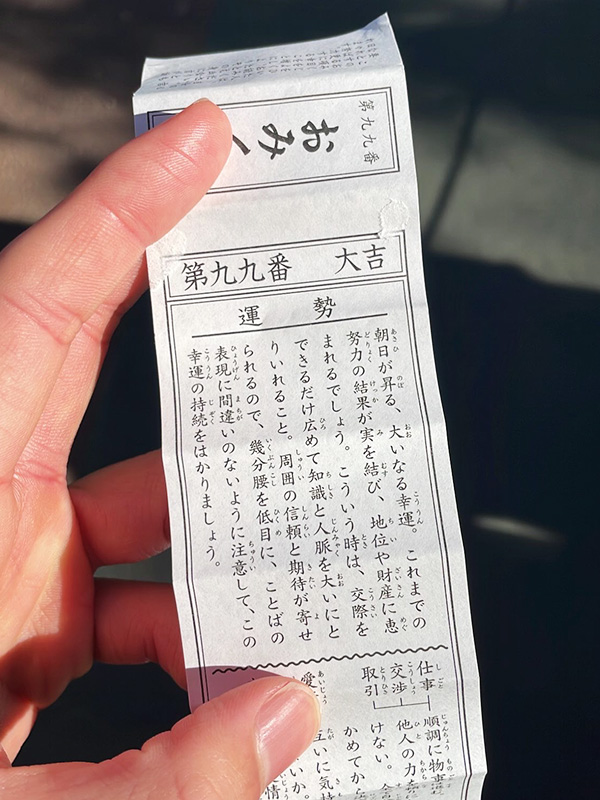 第九九番
おみく
第九九番 大吉
運勢
朝日が昇る、大いなる幸運。これまでの
努力の結果が実を結び、地位や財産に恵
まれるでしょう。こういう時は、交際を
できるだけ広めて知識と人脈を大いにと
りいれること。周囲の信頼と期待が寄せ
られるので、幾分腰を低目に、ことばの
表現に間違いのないように注意して、この
幸運の持続をはかりましょう。
仕事
交渉
取引
順調に物事
他人の力を
けない。
かめてから
愛
互いに気持
いか。
情